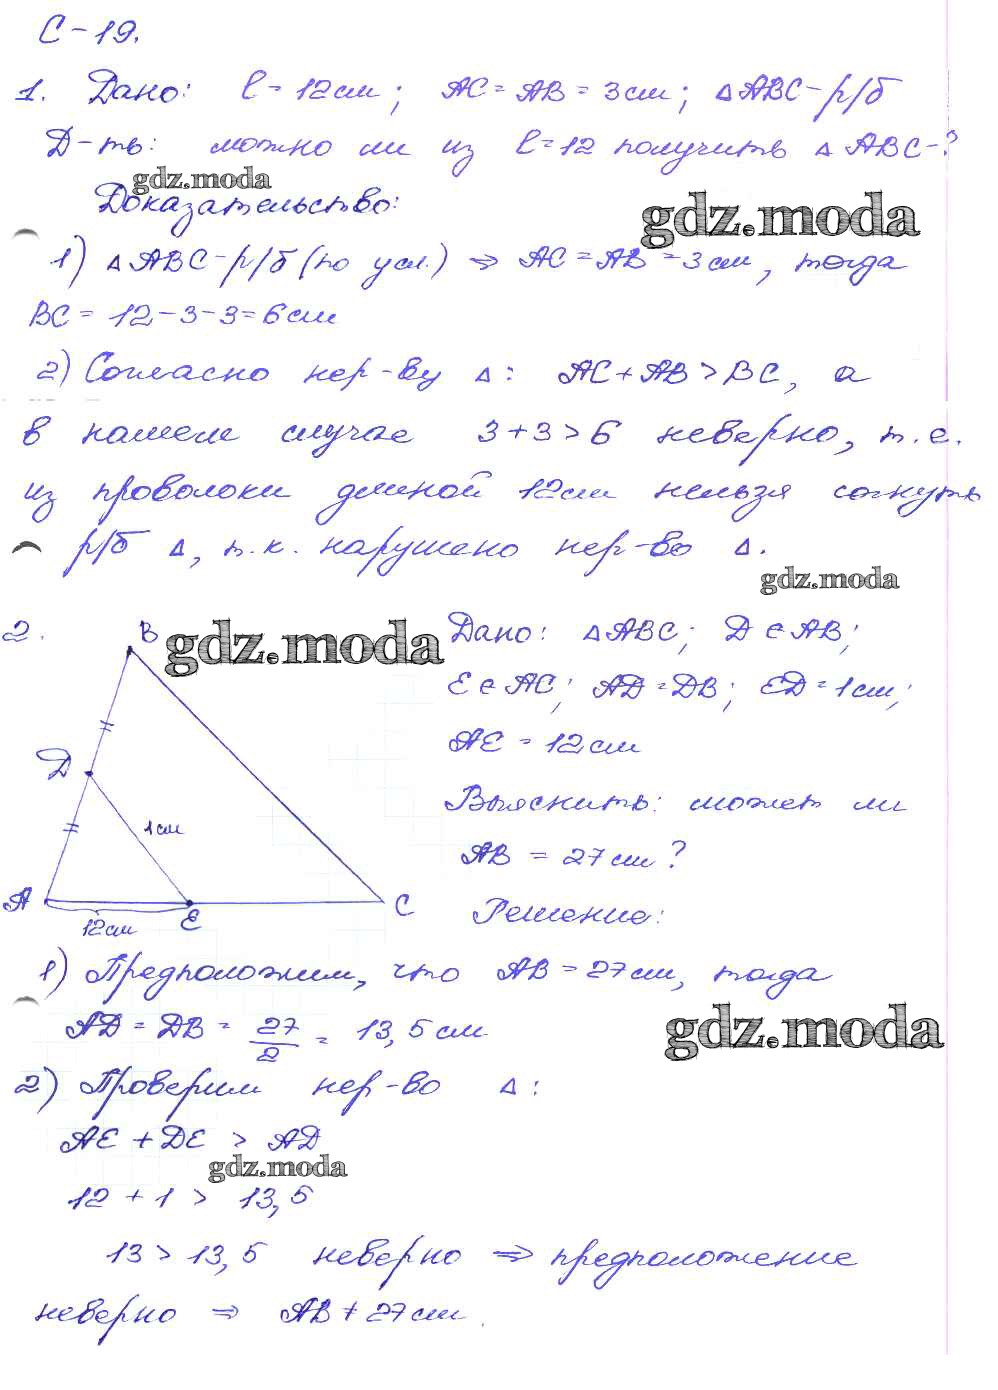 С-19.
1. Дано: l = 12 см; AC = AB = 3 см; △ABC - р/б
Д-ть: можно ли из l = 12 получить △ ABC - ?
gdz.moda
Доказательство:
gdz.moda
1) △ABC - р/б (по усл.) ⇒ AC = AB = 3 см, тогда
BC = 12 - 3 - 3 = 6 см
2) Согласно нер-ву △: AC + AB > BC, а
в нашем случае 3 + 3 > 6 неверно, т.е.
из проволоки длиной 12 см нельзя согнуть
р/б △, т.к. нарушено нер-во △.
gdz.moda
2.
B
gdz.moda
D
1 см
A
E
C
12 см
Дано: △ABC; D ∈ AB;
E ∈ AC; AD = DB; ED = 1 см;
AE = 12 см
Выяснить: может ли
AB = 27 см?
Решение:
1) Предположим, что AB = 27 см, тогда
AD = DB = 27/2 = 13,5 см
gdz.moda
2) Проверим нер-во △:
AE + DE > AD
gdz.moda
12 + 1 > 13,5
13 > 13,5 неверно ⇒ предположение
неверно ⇒ AB ≠ 27 см.